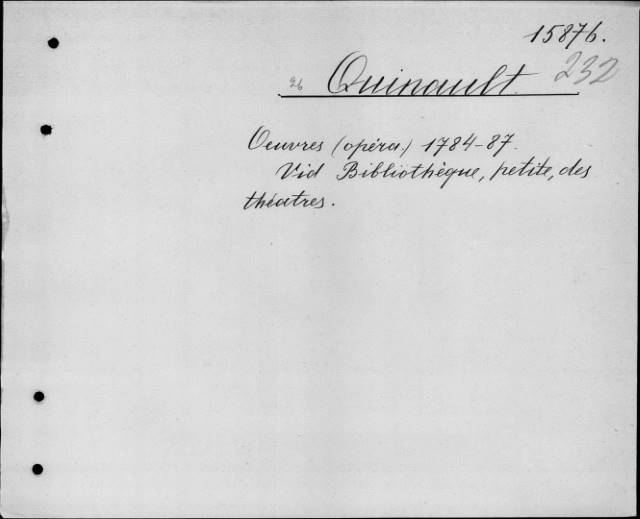 15876.
26 Quinault 232
Oeuvres (opéra.) 1784-87.
Vid Bibliothèque, petite, des
théatres.